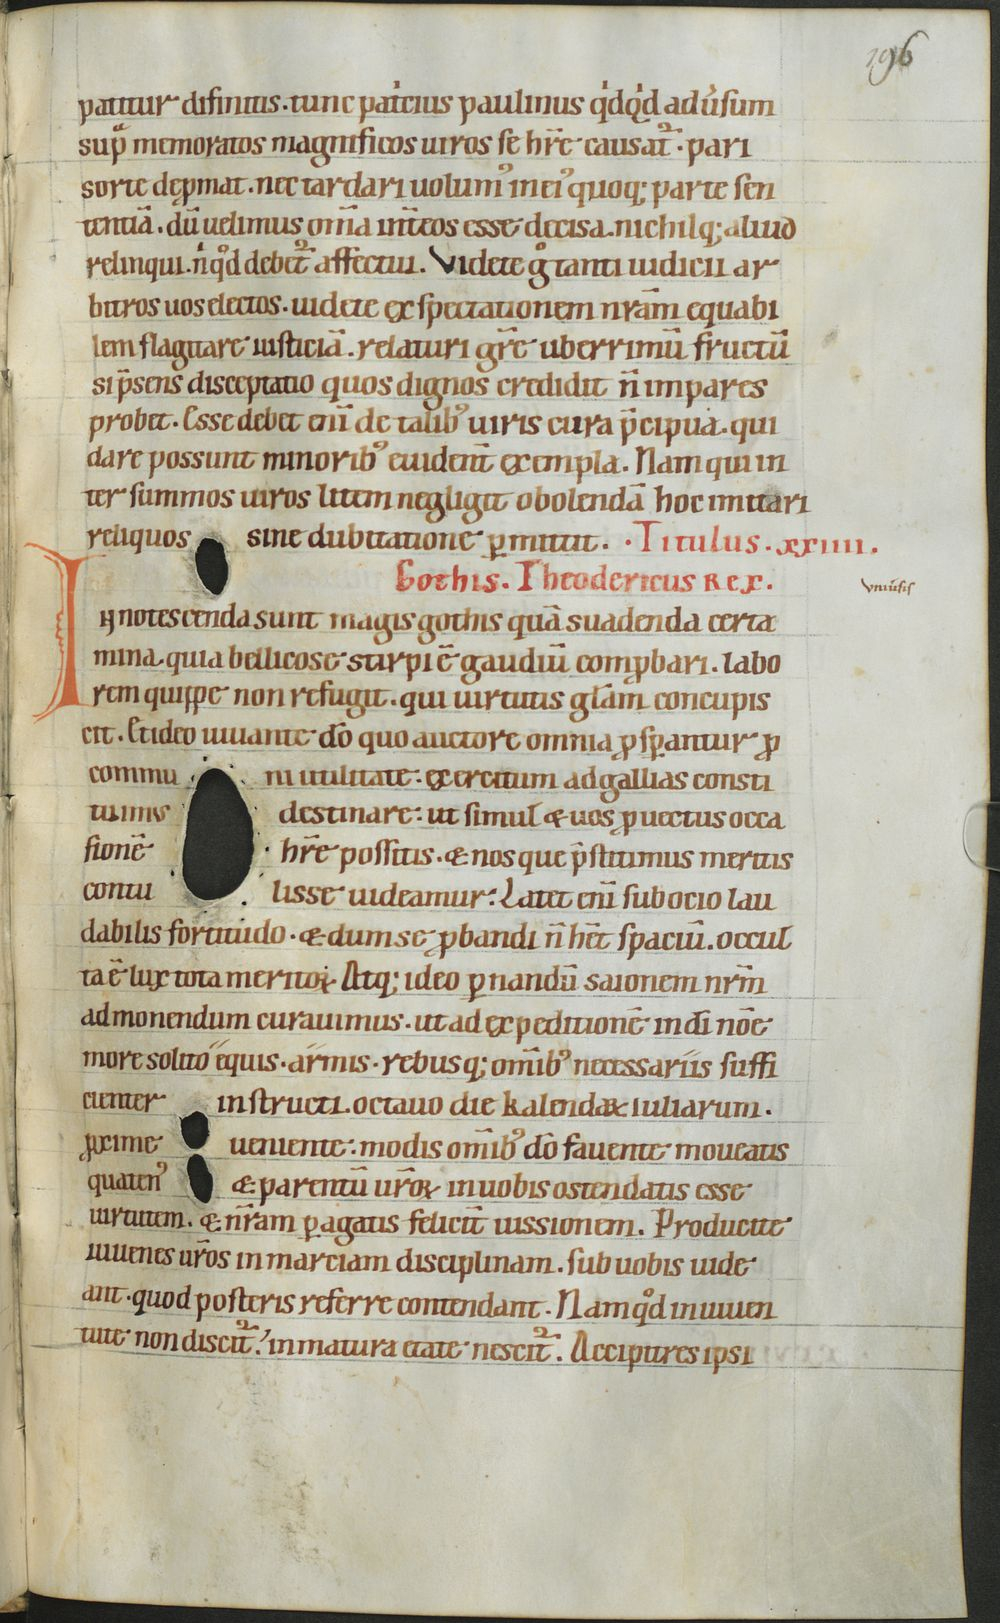 196
patitur difinitis. tunc pat͛cius paulinus q͛dq̣͛d adu͛sum
sup̄ memoratos magnificos uiros se hr̄e causat᷑. pari
sorte dep̱mat. nec tardari uolumꝰ in eiꝰ quoq; parte sen
tentiā. dū uelimus om̄a int̄ eos esse decisa. nichilq; aliud
relinqui. n̄ q̊d debet᷑ affectui. Videte g̊ tanti iudicii ar
bitros uos electos. uidete exspectationem nr̄am equabi
lem flagitare iusticiā. relaturi gr̄e uberrimū fructū
si p̄sens disceptatio quos dignos credidit n̄ impares
probet. Esse debet eni̅ de talibꝰ uiris cura p̄cipua. qui
dare possunt minoribꝰ euident̄ exempla. Nam qui in
ter summos uiros litem negligit obolendā hoc imitari
reliquos sine dubitatione ꝑmittit. ·Titulus. xxiiii.
Gothis. Theodericus Rex.
vniu͛sis
Innotescenda sunt magis gothis quā suadenda certa
mina. quia bellicose stirpi ē gaudiū comꝓbari. labo
rem quippe non refugit. qui uirtutis gl̄am concupis
cit. Et ideo iuuante do̅ quo auctore omnia ꝓsꝑantur ꝓ
commu ni utilitate: exercitum ad gallias consti
tuimus destinare: ut simul & uos ꝓuectus occa
sionē hr̄e possitis. & nos que p̄stitimus meritis
contu lisse uideamur: Latet eni̅ sub ocio lau
dabilis fortitudo. & dum se ꝓbandi n̄ het̄ spaciū. occul
ta ē lux tota meritoꝝ Atq; ideo ꝑ nandū saionem nrm̄
admonendum curauimus. ut ad expeditionē in di̅ noīe
more solito equis. armis. rebusq; om̄ibꝰ necessariis suffi
cienter instructi. octauo die kalendaꝝ iuliarum.
ꝓxime ueniente: modis om̄ibꝰ do̅ fauente moueatis
quatenꝰ & parentū ur̄oꝝ in uobis ostendatis esse
uirtutem. & nr̄am ꝑagatis felicit̄ iussionem. Producite
iuuenes ur̄os in marciam disciplinam. sub uobis uide
ant. quod posteris referre contendant. Nam q̊d in iuuen
tute non discit᷑: in matura etate nescit᷑. Accipitres ipsi